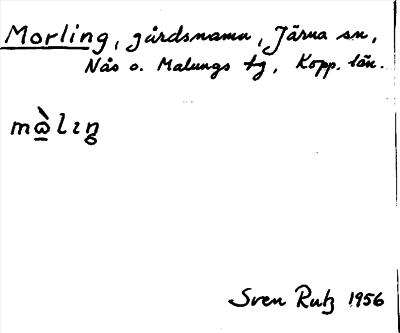 Morling, gårdsnamn, Järna sn,
Nås o. Malungs tg, Kopp. län.
mòlıŋ
Sven Rutz 1956